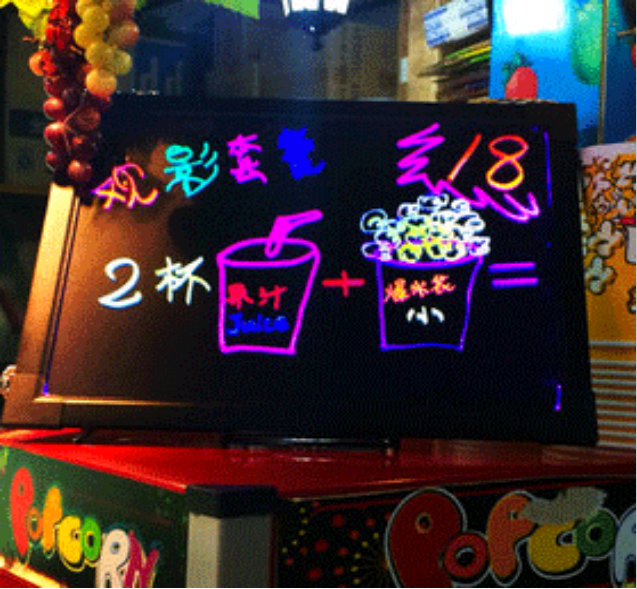 观影套餐 18
2杯 果汁 Juice + 爆米花 小 =
POPCORN POPCORN